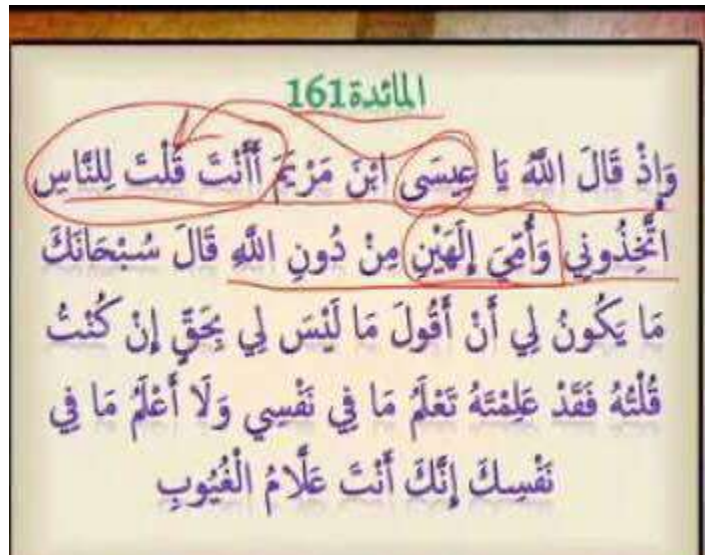 المائدة161
وَإِذْ قَالَ اللَّهُ يَا عِيسَى ابْنَ مَرْيَمَ أَأَنْتَ قُلْتَ لِلنَّاسِ
اتَّخِذُونِي وَأُمِّيَ إِلَهَيْنِ مِنْ دُونِ اللَّهِ قَالَ سُبْحَانَكَ
مَا يَكُونُ لِي أَنْ أَقُولَ مَا لَيْسَ لِي بِحَقٍّ إِنْ كُنْتُ
قُلْتُهُ فَقَدْ عَلِمْتَهُ تَعْلَمُ مَا فِي نَفْسِي وَلَا أَعْلَمُ مَا فِي
نَفْسِكَ إِنَّكَ أَنْتَ عَلَّامُ الْغُيُوبِ